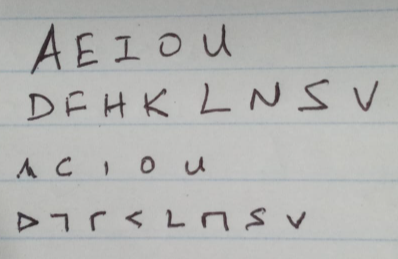 A E I O U
D F H K L N S V
ʌ c ı o u
▷ ㄱ r < L ⊓ s v